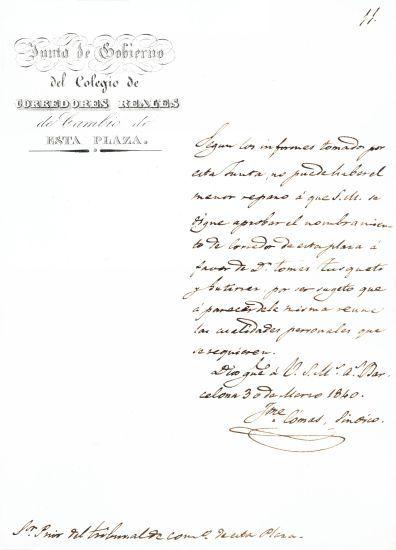 11
Junta de Gobierno
del Colegio de
CORREDORES REALES
de Cambio de
ESTA PLAZA.
Segun los informes tomado por
esta Junta, no puede haber el
menor reparo á que S.M. se
digne aprobar el nombramien
to de corredor de esta plaza á
favor de Dn. tomás tusquets
y Gutierrez por ser sugeto que
á parecer de la misma reune
las cualidades personales que
se requieren.
Dios gue á V. S. Ms. As. Bar
celona 30 de Marzo 1840.
Comas, Sindico
Sr. Prior del tribunal de com.o de esta Plaza.